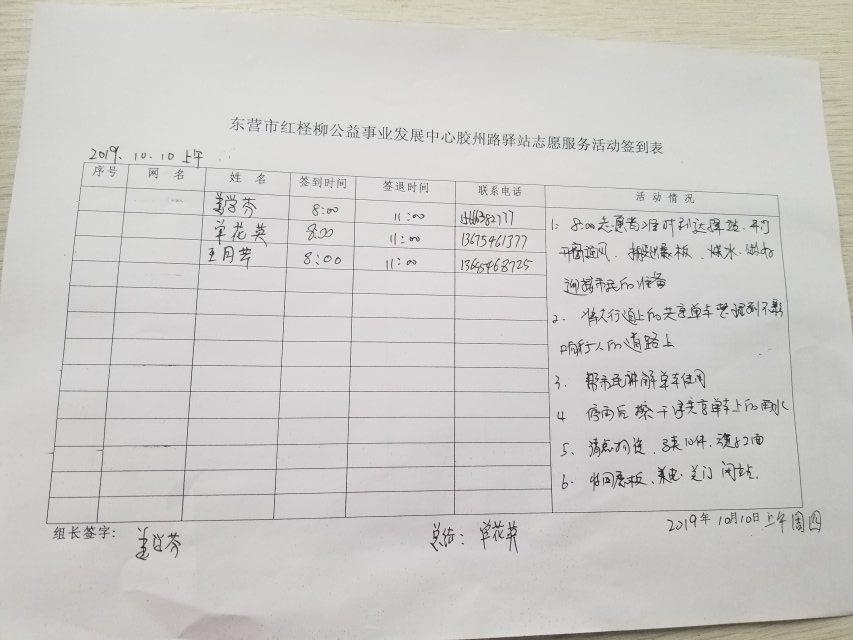 东营市红柽柳公益事业发展中心胶州路驿站志愿服务活动签到表
2019.10.10上午
序号 网名 姓名 签到时间 签退时间 联系电话 活动情况
姜学芬 8:00 11:00
单花英 8:00 11:00 13675461377
王月芹 8:00 11:00 13645468725
1: 8:00志愿者准时到达驿站.开门
开窗通风.搬出展板.烧水.做好
迎接市民的准备
2. 将人行道上的共享单车整理到不影
响行人的道路上
3. 帮市民讲解单车使用
4 停雨后擦干净共享单车上的雨水
5. 清点物送、马夹10件、旗子2面
6. 收回展板、关电.关门闭站.
组长签字: 姜学芬
总结: 单花英
2019年10月10日上午周四